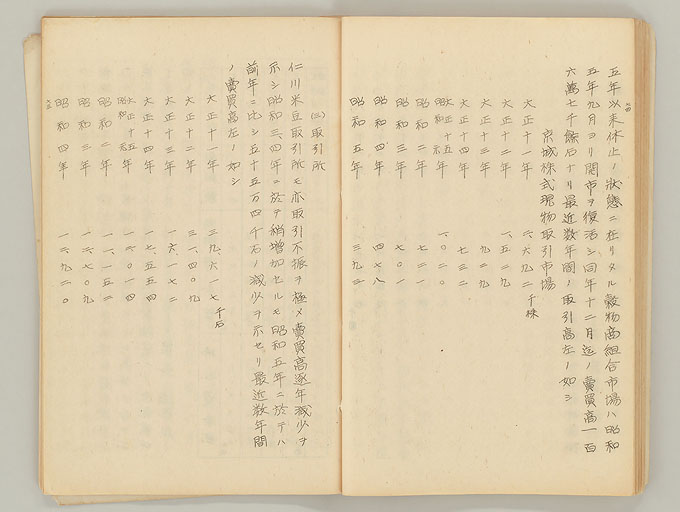 五年以来休止ノ狀態ニ在リタル穀物商組合市場ハ昭和
五年九月ヨリ開市ヲ復活シ同年十二月迄ノ賣買高一百
六萬七千餘石ナリ最近数年間ノ取引高左ノ如シ
京城株式現物取引市場
大正十一年 二、六九二千株
大正十二年 一、五二九
大正十三年 九二九
大正十四年 七三二
大正十五 昭和元年 一、〇二〇
昭和二年 七二一
昭和三年 七〇一
昭和四年 四七八
昭和五年 三九三
(三)取引所
仁川米豆取引所モ亦取引不振ヲ極メ賣買高逐年減少ヲ
示シ昭和三、四年ニ於テ稍増加セルモ昭和五年ニ於テハ
前年ニ比シ五十五万四千石ノ減少ヲ示セリ最近数年間
ノ賣買高左ノ如シ
大正十一年 三九、六一七千石
大正十二年 三一、四〇九
大正十三年 一六、一七二
大正十四年 一七、五五四
大正十五 昭和元年 一六、〇一四
昭和二年 一一、一五二
昭和三年 一二、七〇九
昭和四年 一三、九二〇